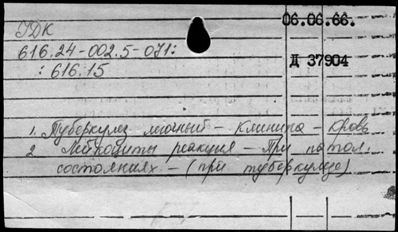 УДК
06.06.66.
616.24-002.5-071:
: 616.15
Д 37904
1. Туберкулез легочный - Клиника - Кровь
2. Лейкоциты реакция - При патол.
состояниях - (при туберкулезе)